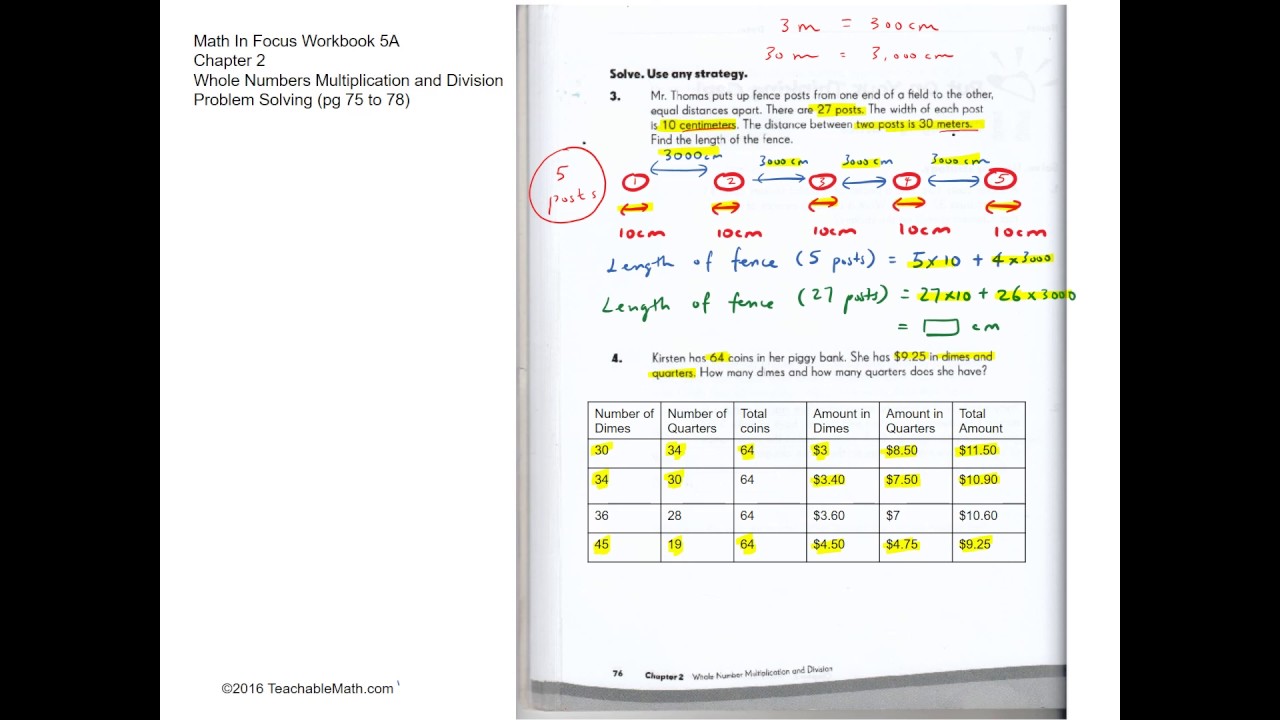 Math In Focus Workbook 5A
Chapter 2
Whole Numbers Multiplication and Division
Problem Solving (pg 75 to 78)
3 m = 300 cm
30 m = 3,000 cm
Solve. Use any strategy.
3. Mr. Thomas puts up fence posts from one end of a field to the other,
equal distances apart. There are 27 posts. The width of each post
is 10 centimeters. The distance between two posts is 30 meters.
Find the length of the fence.
5 posts
3000cm 3000cm 3000cm 3000cm
1 2 3 4 5
10cm 10cm 10cm 10cm 10cm
Length of fence (5 posts) = 5×10 + 4×3000
Length of fence (27 posts) = 27×10 + 26×3000
= cm
4. Kirsten has 64 coins in her piggy bank. She has $9.25 in dimes and
quarters. How many dimes and how many quarters does she have?
Number of Dimes Number of Quarters Total coins Amount in Dimes Amount in Quarters Total Amount
30 34 64 $3 $8.50 $11.50
34 30 64 $3.40 $7.50 $10.90
36 28 64 $3.60 $7 $10.60
45 19 64 $4.50 $4.75 $9.25
76 Chapter 2 Whole Number Multiplication and Division
©2016 TeachableMath.com